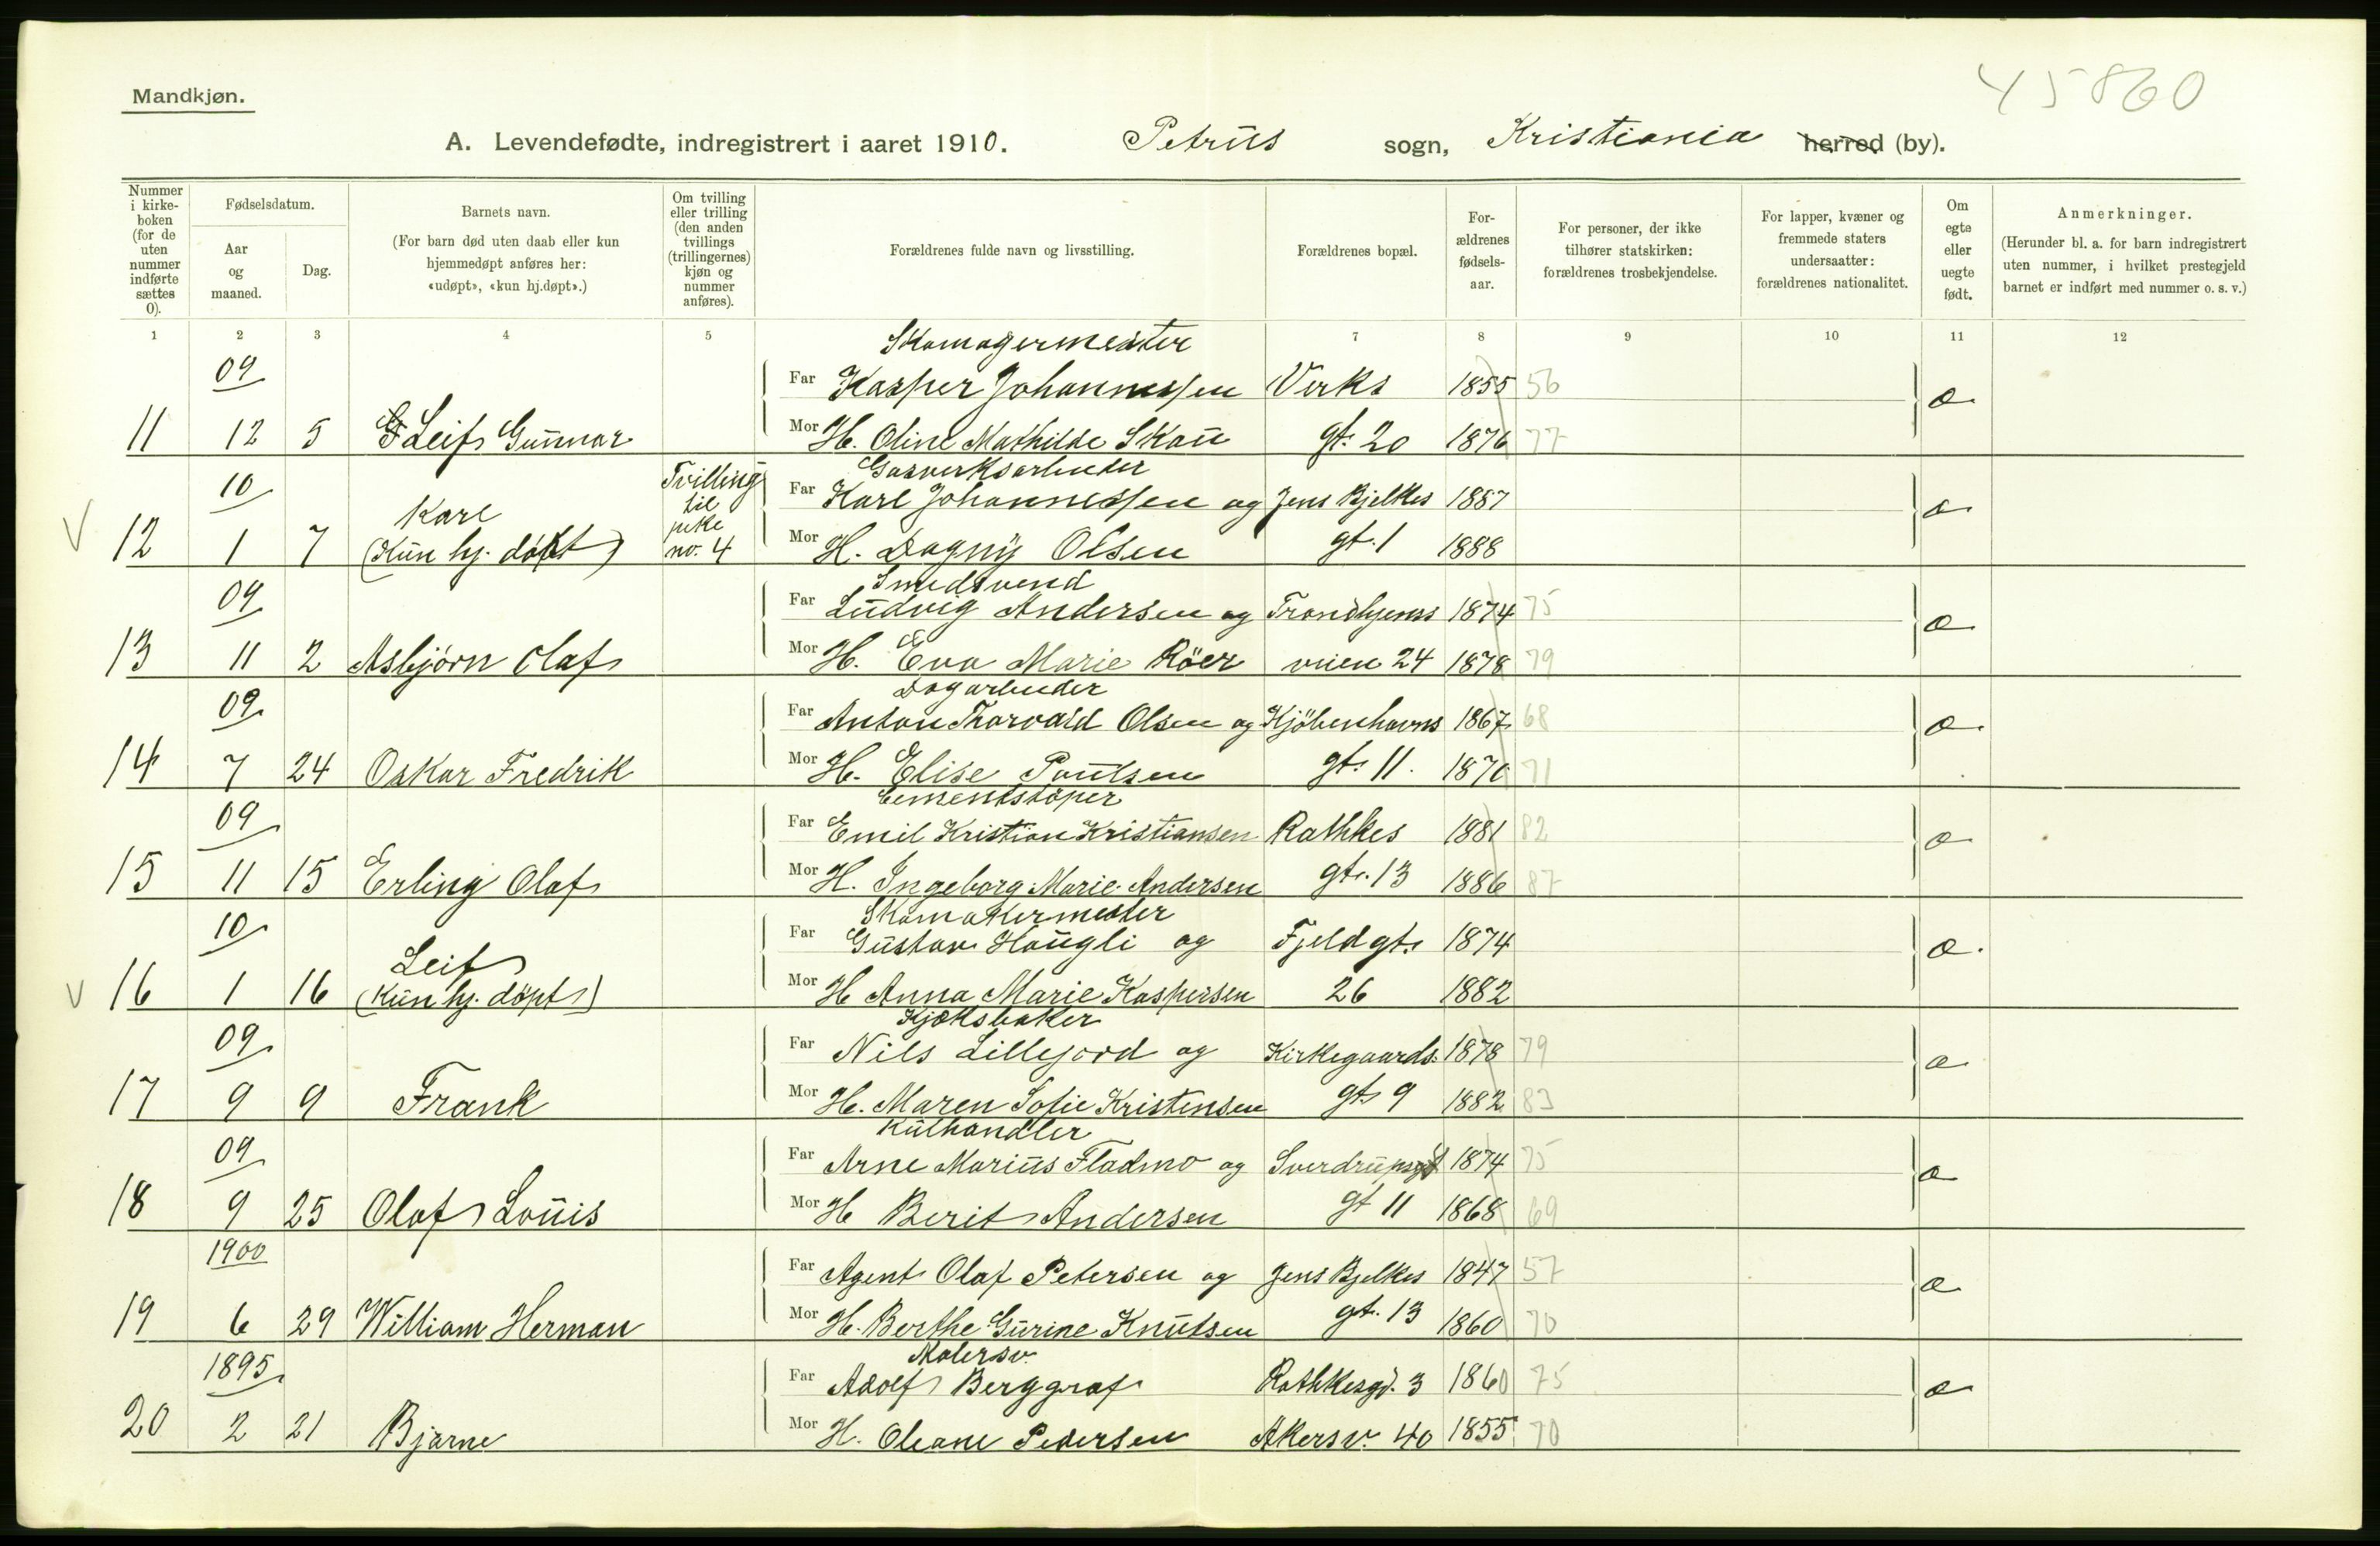 45860
Mandkjøn.
A. Levendefødte, indregistrert i aaret 1910. Petrus sogn, Kristiania herred (by).
Nummer i kirke-boken (for de uten nummer indførte sættes 0).
Fødselsdatum.
Aar og maaned.
Dag.
Barnets navn.
(For barn død uten daab eller kun hjemmedøpt anføres her: «udøpt», «kun hj.døpt».)
Om tvilling eller trilling (den anden tvillings (trillingernes) kjøn og nummer anføres).
Forældrenes fulde navn og livsstilling.
Forældrenes bopæl.
For-ældrenes fødsels-aar.
For personer, der ikke tilhører statskirken: forældrenes trosbekjendelse.
For lapper, kvæner og fremmede staters undersaatter: forældrenes nationalitet.
Om egte eller uegte født.
Anmerkninger.
(Herunder bl. a. for barn indregistrert uten nummer, i hvilket prestegjeld barnet er indført med nummer o. s. v.)
1 2 3 4 5 7 8 9 10 11 12
Skomagermester
09 Far Kasper Johannessen Verks 1855 56
11 12 5 Leif Gunnar Mor H. Oline Mathilde Skau gt. 20 1876 77 æ
Gasverksarbeider
10 Karl Tvilling til Far Karl Johannessen og Jens Bjelkes 1887
V 12 1 7 (Kun hj. døbt) pike no. 4 Mor H. Dagny Olsen gt. 1 1888 æ
Smedsvend
09 Far Ludvig Andersen og Trondhjems 1874 75
13 11 2 Asbjörn Olaf Mor H. Eva Marie Röer veien 24 1878 79 æ
Dagarbeider
09 Far Anton Thorvald Olsen og Kjöbenhavns 1867 68
14 7 24 Oskar Fredrik Mor H. Elise Poulsen gt. 11. 1870 71 æ
Cementstöper
09 Far Emil Kristian Kristiansen Rathkes 1881 82
15 11 15 Erling Olaf Mor H. Ingeborg Marie Andersen gt. 13 1886 87 æ
Skomakermester
10 Leif Far Gustav Haugli og Fjeldgt. 1874
V 16 1 16 (Kun hj. döpt) Mor H Anna Marie Kaspersen 26 1882 æ.
Kjæksbaker
09 Far Nils Lillejord og Kirkegaards. 1878 79
17 9 9 Frank Mor H. Maren Sofie Kristensen gt. 9 1882 83 æ
Kulhandler
09 Far Arne Marius Fladmo og Sverdrups 1874 75
18 9 25 Olaf Louis Mor H Berit Andersen gt 11 1868 69 æ
1900 Far Agent Olaf Petersen og Jens Bjelkes 1847 57
19 6 29 William Herman Mor H. Berthe Gurine Knutsen gt. 13 1860 70 æ
Malersv.
1895 Far Adolf Berggraf Rathkesgd. 3 1860 75
20 2 21 Bjarne Mor H. Oleane Pedersen Akersv. 40 1855 70 æ